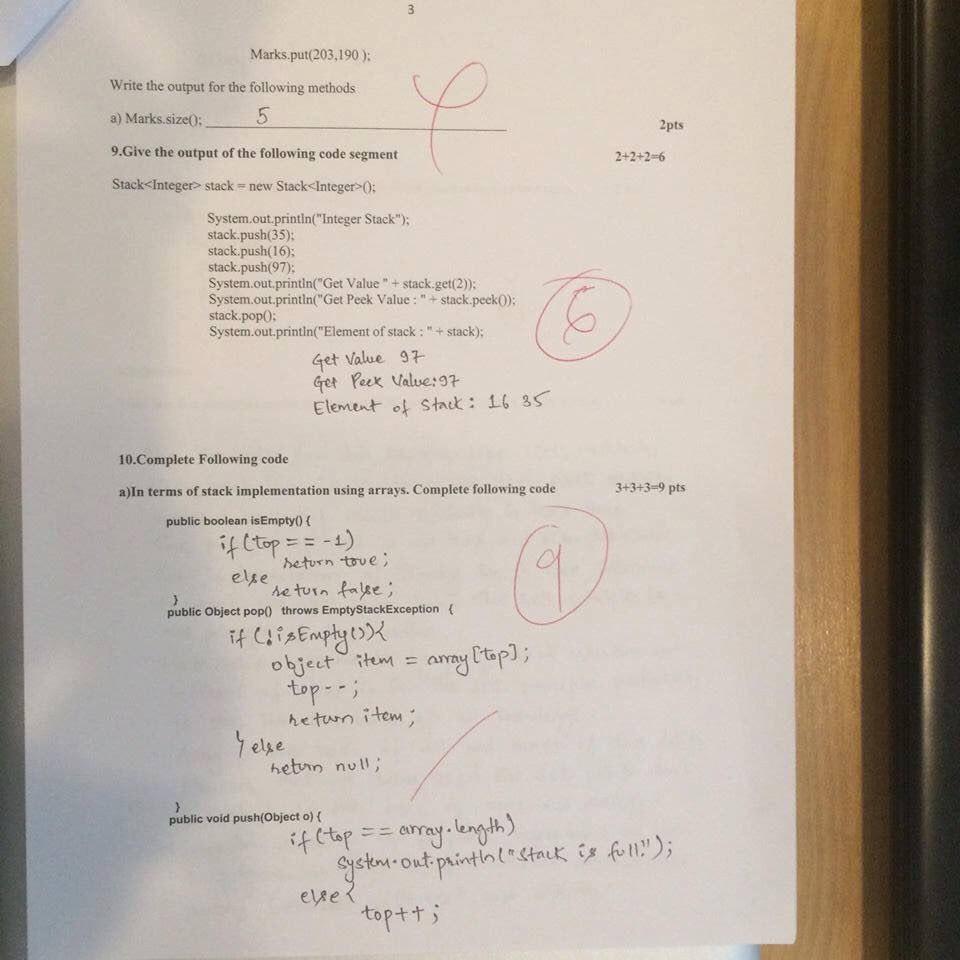 3
Marks.put(203,190 );
Write the output for the following methods
a) Marks.size(); 5
2pts
9.Give the output of the following code segment 2+2+2=6
Stack<Integer> stack = new Stack<Integer>();
System.out.println("Integer Stack");
stack.push(35);
stack.push(16);
stack.push(97);
System.out.println("Get Value " + stack.get(2));
System.out.println("Get Peek Value : " + stack.peek());
stack.pop();
System.out.println("Element of stack : " + stack);
6
Get Value 97
Get Peek Value:97
Element of Stack: 16 35
10.Complete Following code
a)In terms of stack implementation using arrays. Complete following code 3+3+3=9 pts
public boolean isEmpty() {
if(top == -1)
return true;
else
return false;
}
9
public Object pop() throws EmptyStackException {
if(!isEmpty()){
object item = array[top];
top--;
return item;
} else
return null;
}
public void push(Object o) {
if(top == array.length)
system.out.println("Stack is full!");
else{
top++;